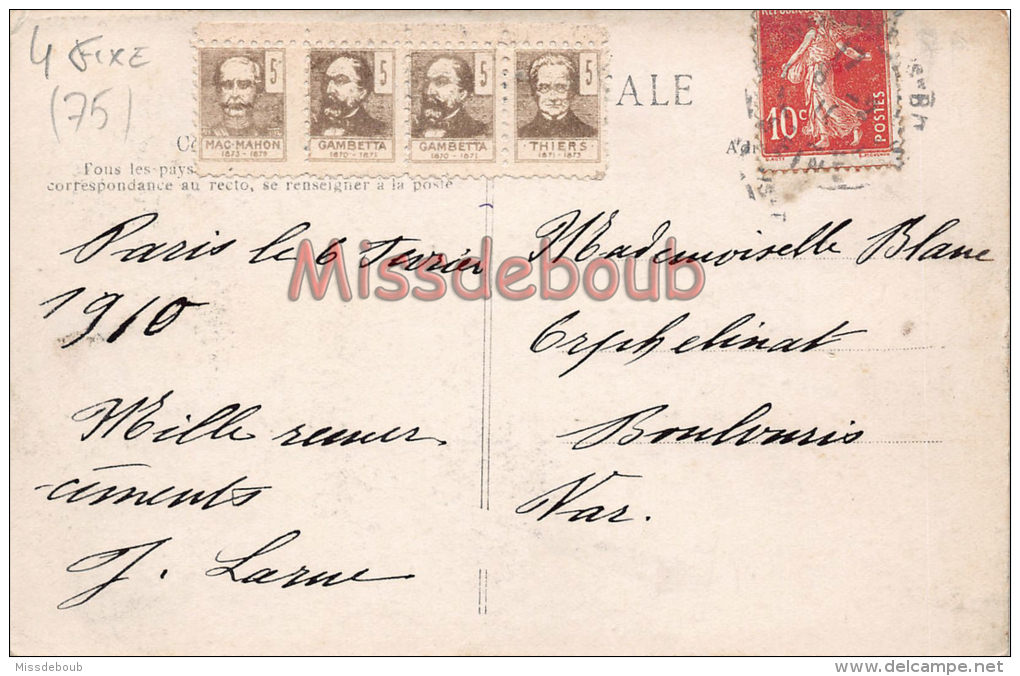 4 FIXE
(75)
5 5 5 5
MAC-MAHON GAMBETTA GAMBETTA THIERS
1873-1879 1870-1871 1870-1871 1871-1873
ALE
10c POSTES
Tous les pays
correspondance au recto, se renseigner à la poste
Paris le 6 Fevrier
1910
Mille remer
-ciments
J. Larue
Mademoiselle Blanc
Orphelinat
Boulouris
Var.
Missdeboub
Missdeboub
http://missdeboub.delcampe.net